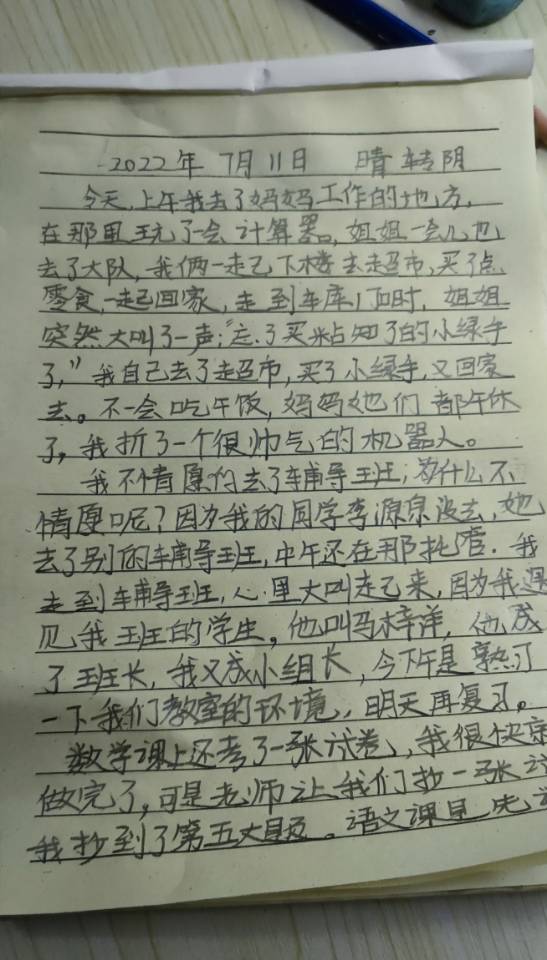 2022年 7月11日 晴转阴
今天,上午我去了妈妈工作的地方,
在那里玩了一会计算器。姐姐一会儿也
去了大队,我俩一起下楼去超市,买了点
零食,一起回家,走到车库门口时,姐姐
突然大叫了一声:"忘了买粘知了的小绿手
了,"我自己去了超市,买了小绿手,又回家
去。不一会吃午饭,妈妈她们都午休
了,我折了一个很帅气的机器人。
我不情愿的去了辅导班;为什么不
情愿呢?因为我的同学李源泉没去,她
去了别的辅导班,中午还在那托管。我
走到辅导班,心里大叫起来,因为我遇
见我班的学生,他叫马梓洋,他成
了班长,我又成小组长,今下午是熟习
一下我们教室的环境,明天再复习。
数学课上还考了一张试卷,我很快就
做完了,可是老师让我们抄一张试
我抄到了第五大题。语文课是先